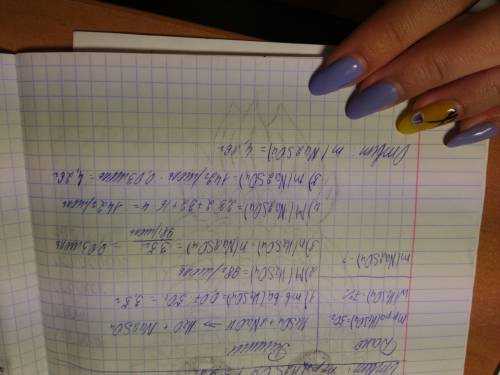 Дано
Решение
mр-ра(H2SO4)=50г
w(H2SO4)=7%
m(Na2SO4)-?
H2SO4+2NaOH ⇒ H2O + Na2SO4
1) mв-ва(H2SO4)=0,07·50г = 3,5г
2) M(H2SO4)=98г/моль
3) n(H2SO4)=n(Na2SO4)= 3,5г
98г/моль = 0,03моль
4) M(Na2SO4)=23·2+32+16·4=142г/моль
5) m(Na2SO4)=142г/моль·0,03моль=4,26г
Ответ: m(Na2SO4)=4,26г